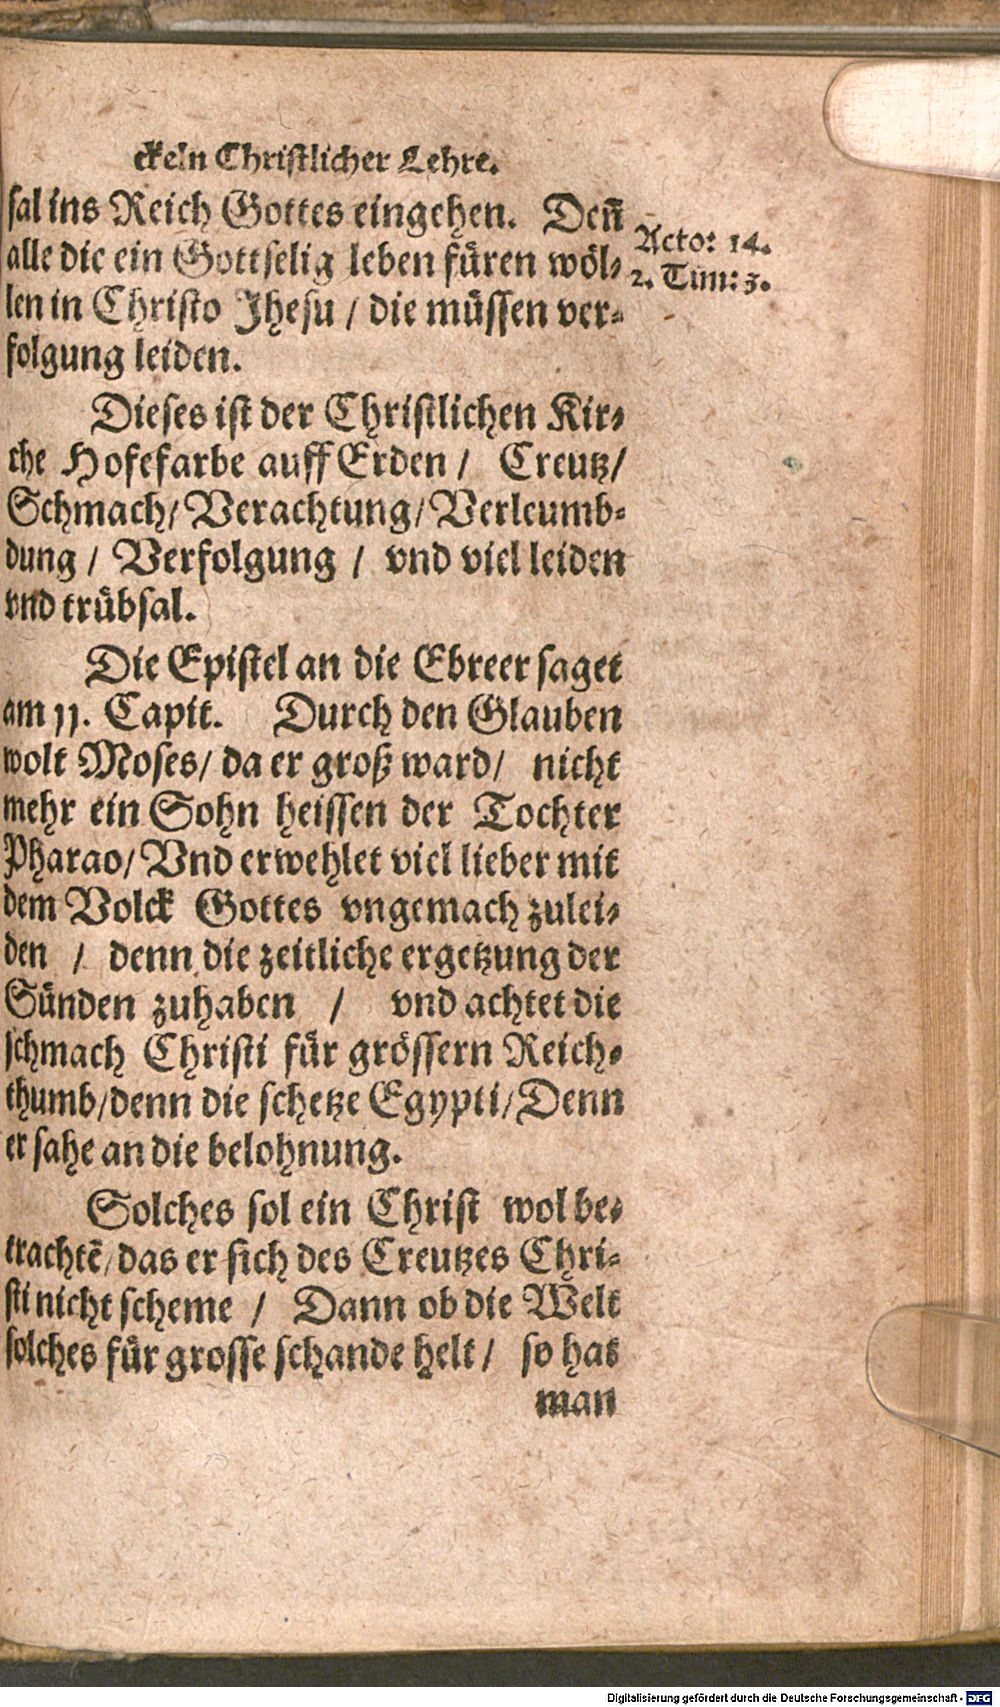 ckeln Christlicher Lehre.
sal ins Reich Gottes eingehen. Deñ
alle die ein Gottselig leben füren wöl-
len in Christo Jhesu / die müssen ver-
folgung leiden.
Actor 14.
2. Tim: 3.
Dieses ist der Christlichen Kir-
che Hofefarbe auff Erden / Creutz /
Schmach / Verachtung / Verleumb-
dung / Verfolgung / vnd viel leiden
vnd trübsal.
Die Epistel an die Ebreer saget
am 11. Capit. Durch den Glauben
wolt Moses / da er groß ward / nicht
mehr ein Sohn heissen der Tochter
Pharao / Vnd erwehlet viel lieber mit
dem Volck Gottes vngemach zulei-
den / denn die zeitliche ergetzung der
Sünden zuhaben / vnd achtet die
schmach Christi für grössern Reich-
thumb / denn die schetze Egypti / Denn
er sahe an die belohnung.
Solches sol ein Christ wol be-
trachtē / das er sich des Creutzes Chri-
sti nicht scheme / Dann ob die Welt
solches für grosse schande helt / so hat
man
Digitalisierung gefördert durch die Deutsche Forschungsgemeinschaft - DFG